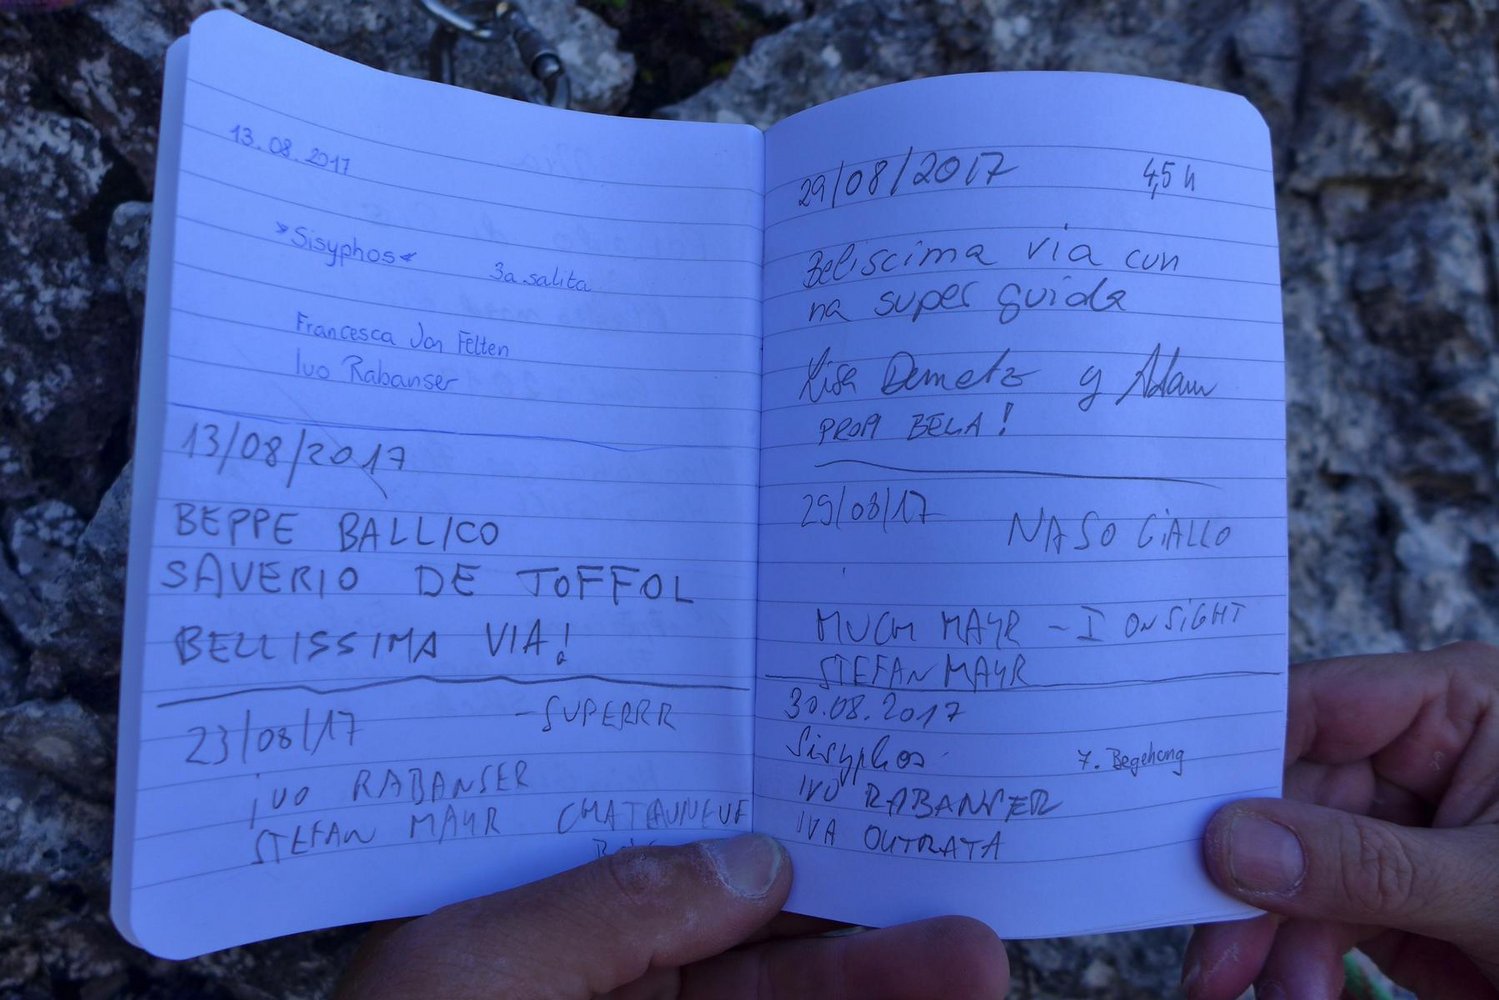 13.08.2017
"Sisyphos" 3a salita
Francesca Von Felten
Ivo Rabanser
13/08/2017
BEPPE BALLICO
SAVERIO DE TOFFOL
BELLISSIMA VIA!
23/08/17 -SUPERRR
IVO RABANSER
STEFAN MAYR
29/08/2017 4,5 h
Beliscima via cun
na super guida
Lisa Demetz y Adam
PROPI BELA!
29/08/17 NASO GIALLO
MUCH MAYR - I ONSIGHT
STEFAN MAYR
30.08.2017
Sisyphos 7. Begehung
IVO RABANSER
IVA OUTRATA